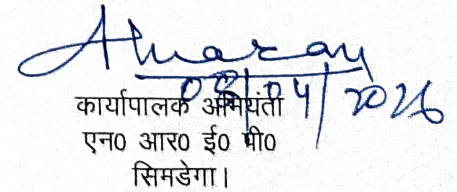 08/04/2026
कार्यापालक अभियंता
एन0 आर0 ई0 पी0
सिमडेगा।